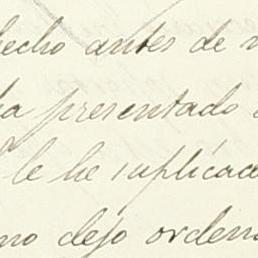 hecho antes de
ha presentado
le he suplicad
no dejo orden